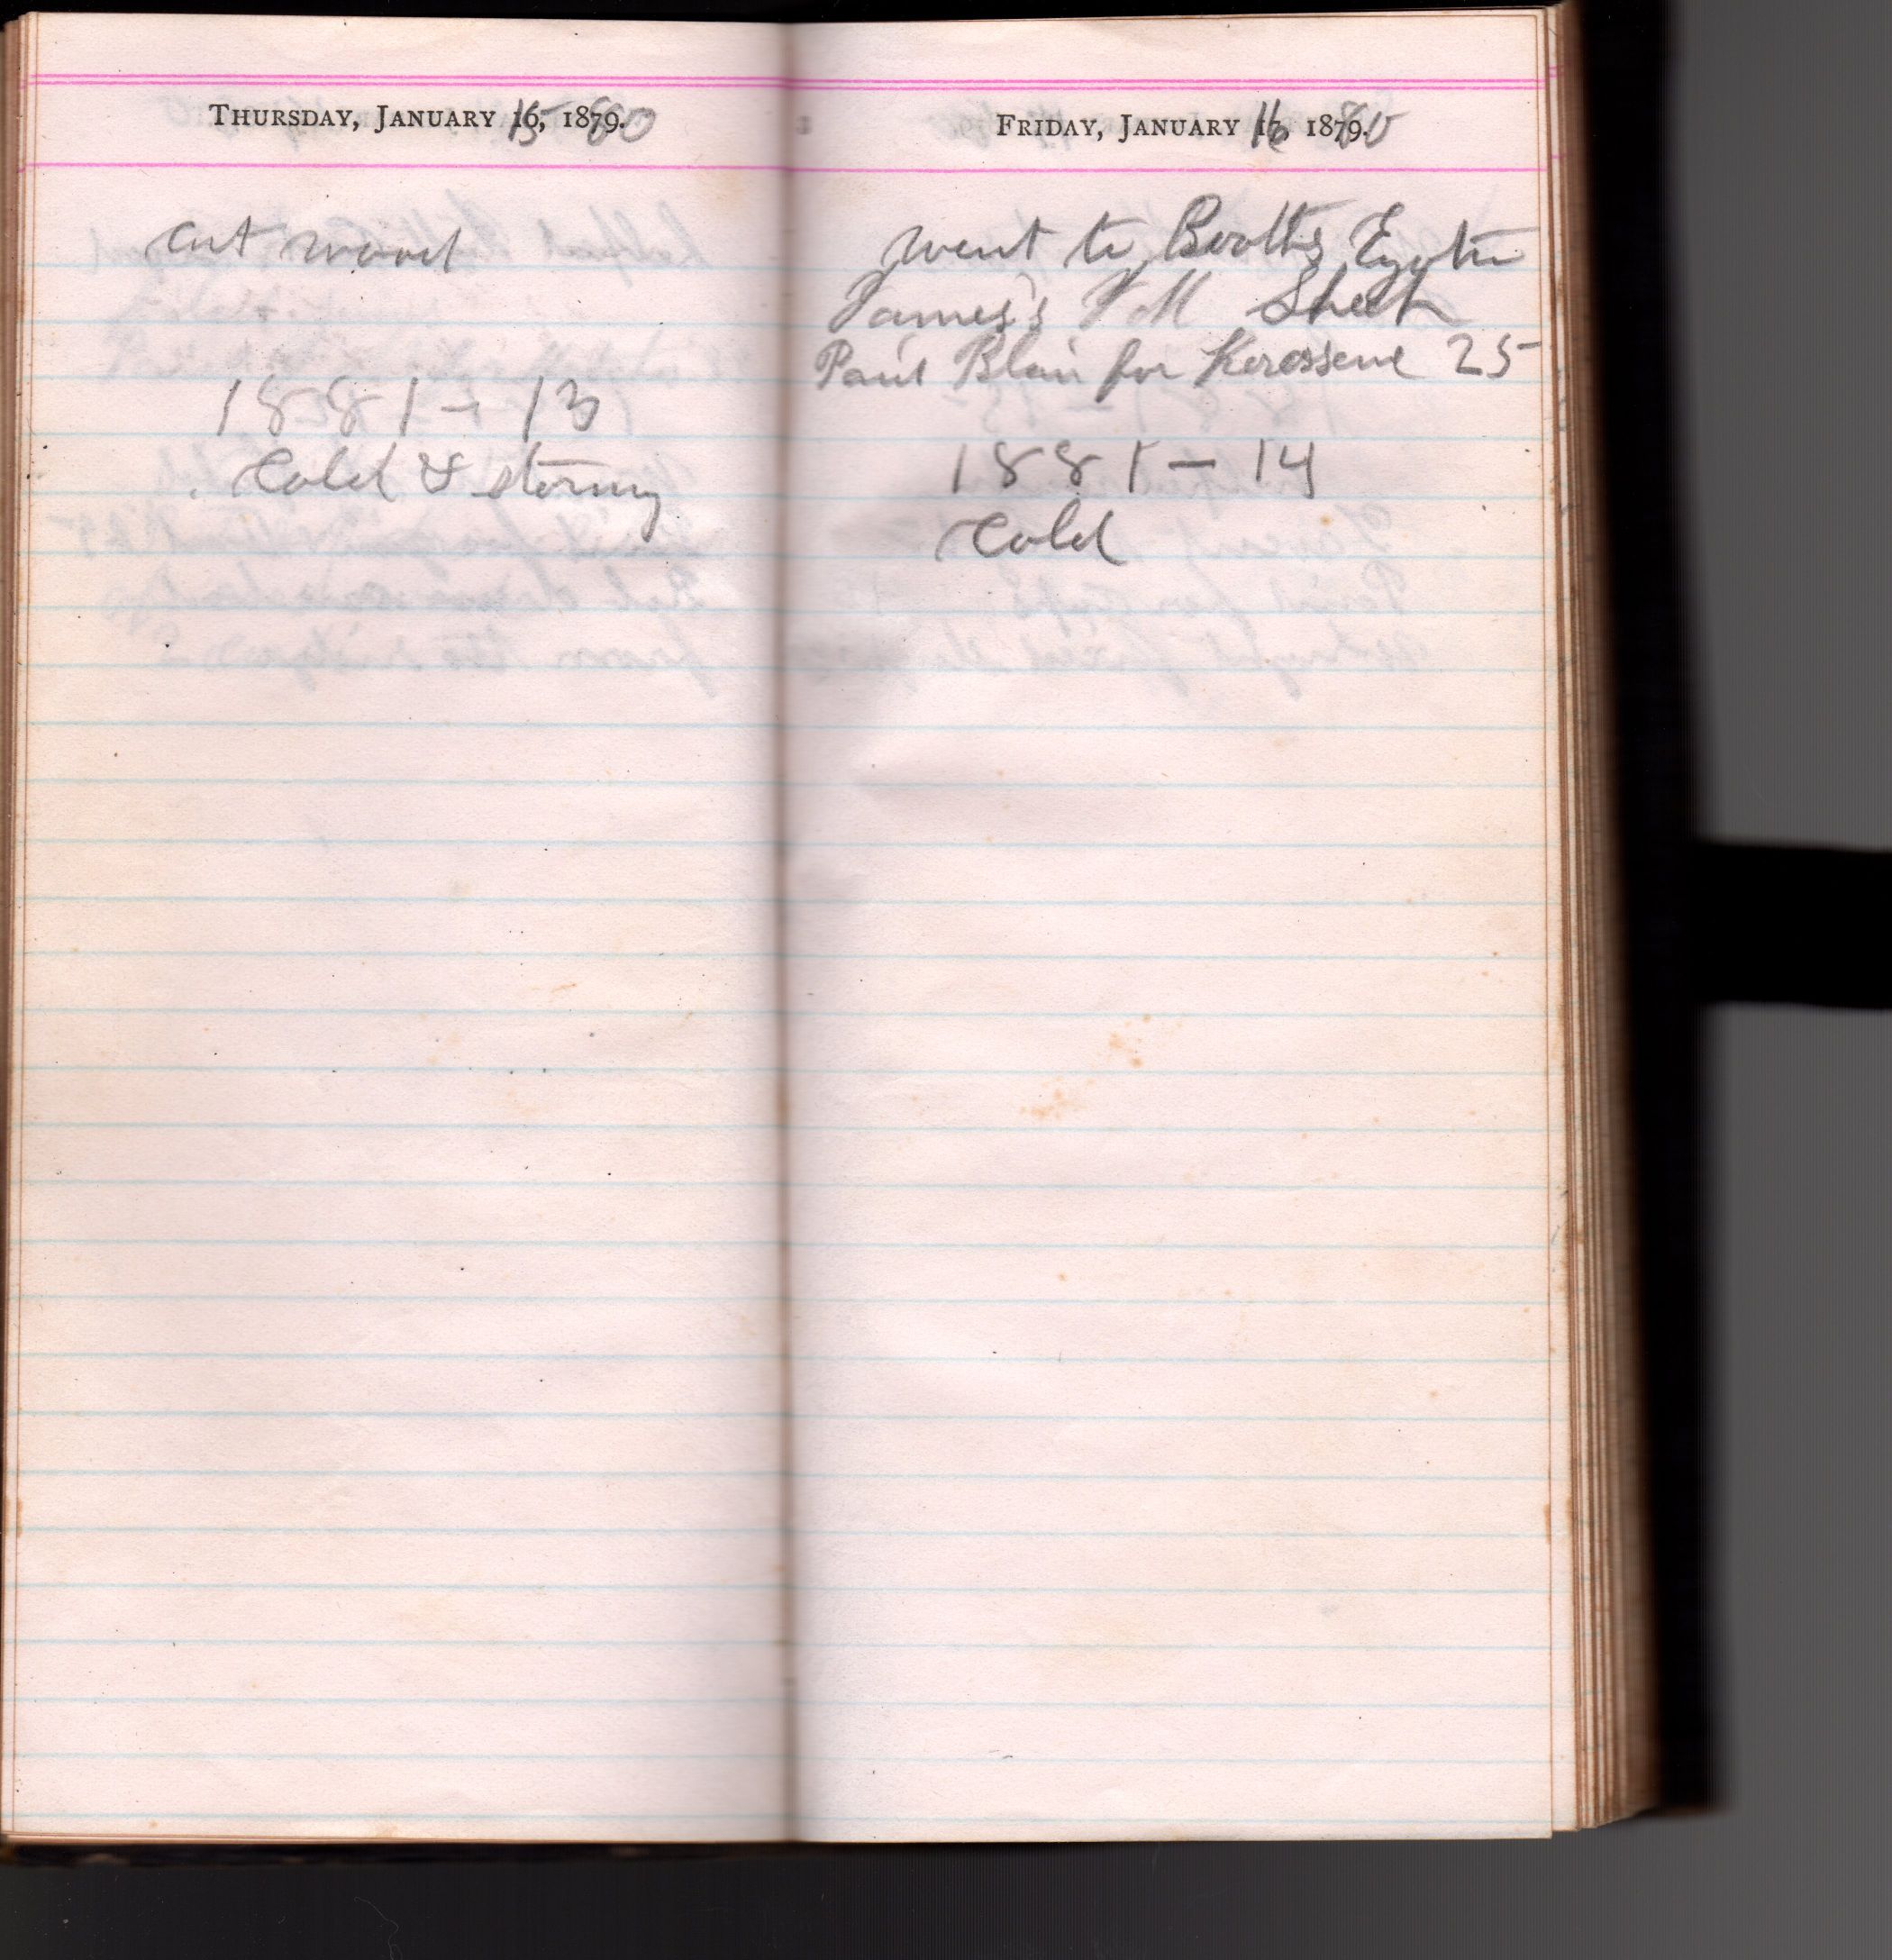 THURSDAY, JANUARY 15, 1880
cut wood
1881 - 13
Cold & stormy
FRIDAY, JANUARY 16 1880
went to Booths
James's Sheek
Paid Blair for Keressene 25
1881 - 14
Cold